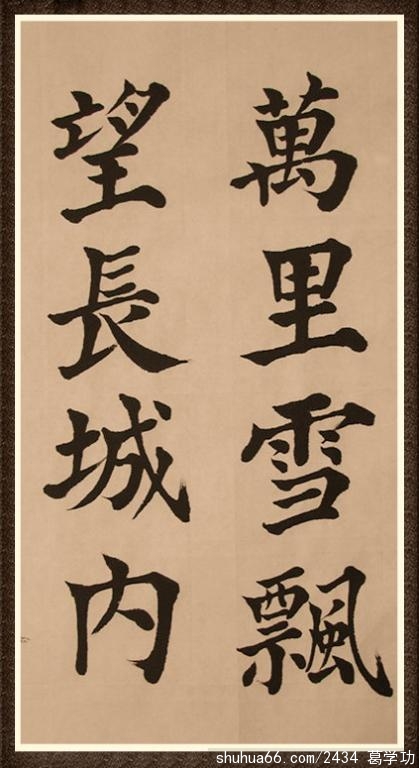 萬里雪飄
望長城内
shuhua66.com/2434 葛学功